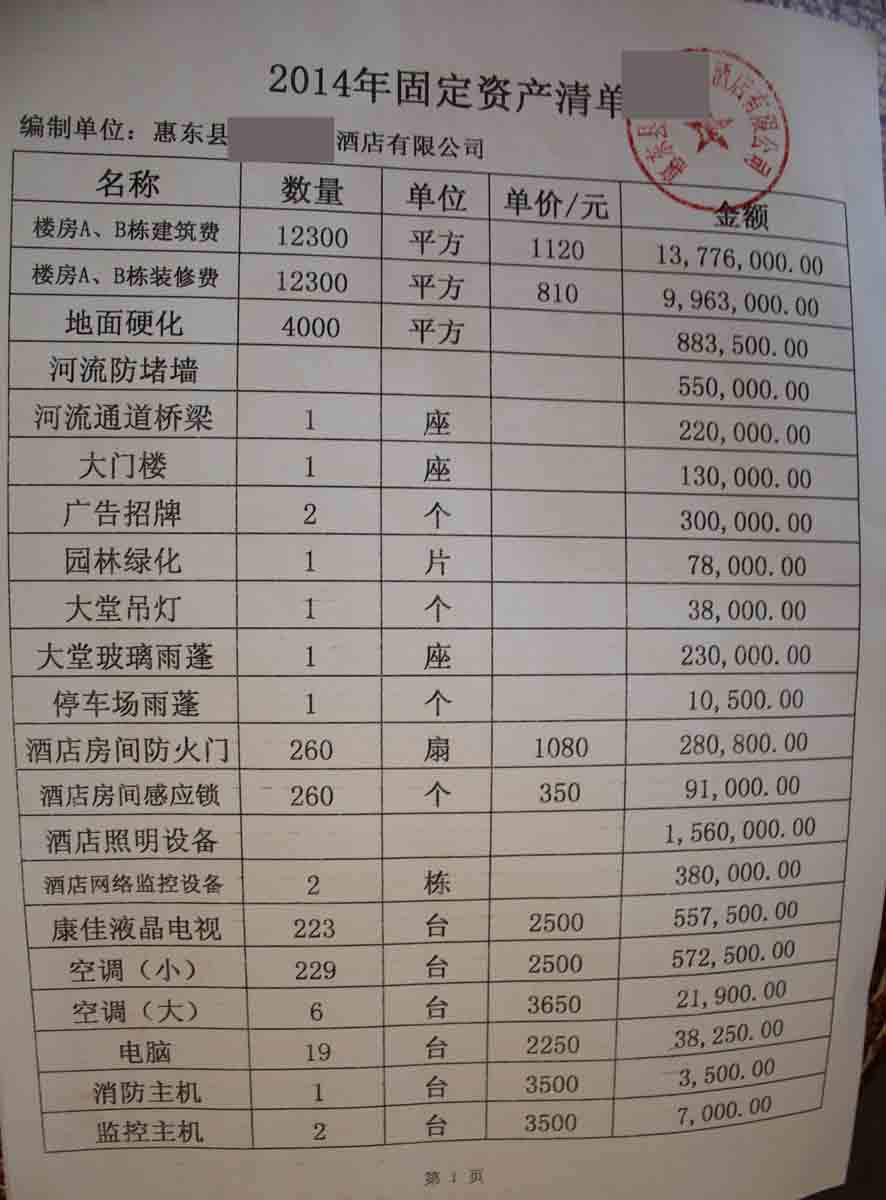 2014年固定资产清单
酒店有限公司
惠东县
编制单位：惠东县 酒店有限公司
名称 数量 单位 单价/元 金额
楼房A、B栋建筑费 12300 平方 1120 13,776,000.00
楼房A、B栋装修费 12300 平方 810 9,963,000.00
地面硬化 4000 平方 883,500.00
河流防堵墙 550,000.00
河流通道桥梁 1 座 220,000.00
大门楼 1 座 130,000.00
广告招牌 2 个 300,000.00
园林绿化 1 片 78,000.00
大堂吊灯 1 个 38,000.00
大堂玻璃雨蓬 1 座 230,000.00
停车场雨蓬 1 个 10,500.00
酒店房间防火门 260 扇 1080 280,800.00
酒店房间感应锁 260 个 350 91,000.00
酒店照明设备 1,560,000.00
酒店网络监控设备 2 栋 380,000.00
康佳液晶电视 223 台 2500 557,500.00
空调（小） 229 台 2500 572,500.00
空调（大） 6 台 3650 21,900.00
电脑 19 台 2250 38,250.00
消防主机 1 台 3500 3,500.00
监控主机 2 台 3500 7,000.00
第 1 页